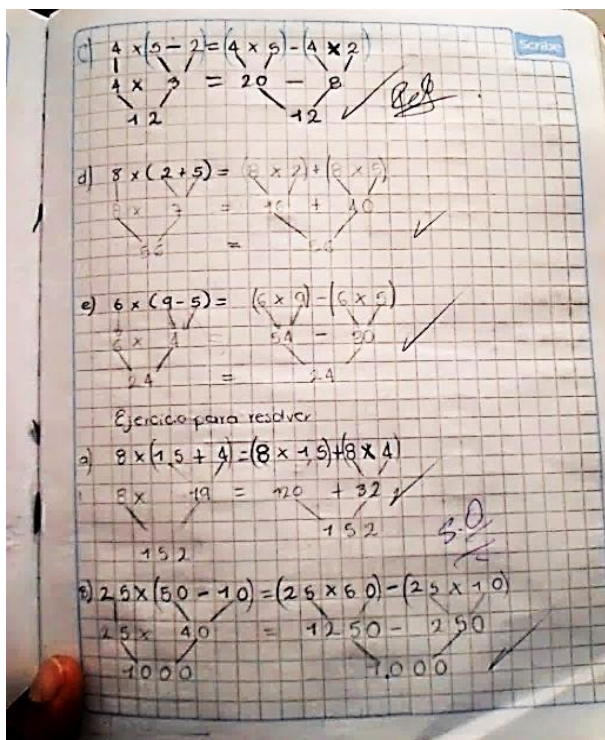 Scribe
c) 4 x (5 - 2) = (4 x 5) - (4 x 2)
4 x 3 = 20 - 8
12 12
d) 8 x (2 + 5) = (8 x 2) + (8 x 5)
8 x 7 = 16 + 40
56 = 56
e) 6 x (9 - 5) = (6 x 9) - (6 x 5)
6 x 4 54 - 30
24 = 24
Ejercicio para resolver
a) 8 x (15 + 4) = (8 x 15) + (8 x 4)
8 x 19 = 120 + 32
152 152
5.0
B) 25 x (50 - 10) = (25 x 50) - (25 x 10)
25 x 40 = 1250 - 250
1000 1,000